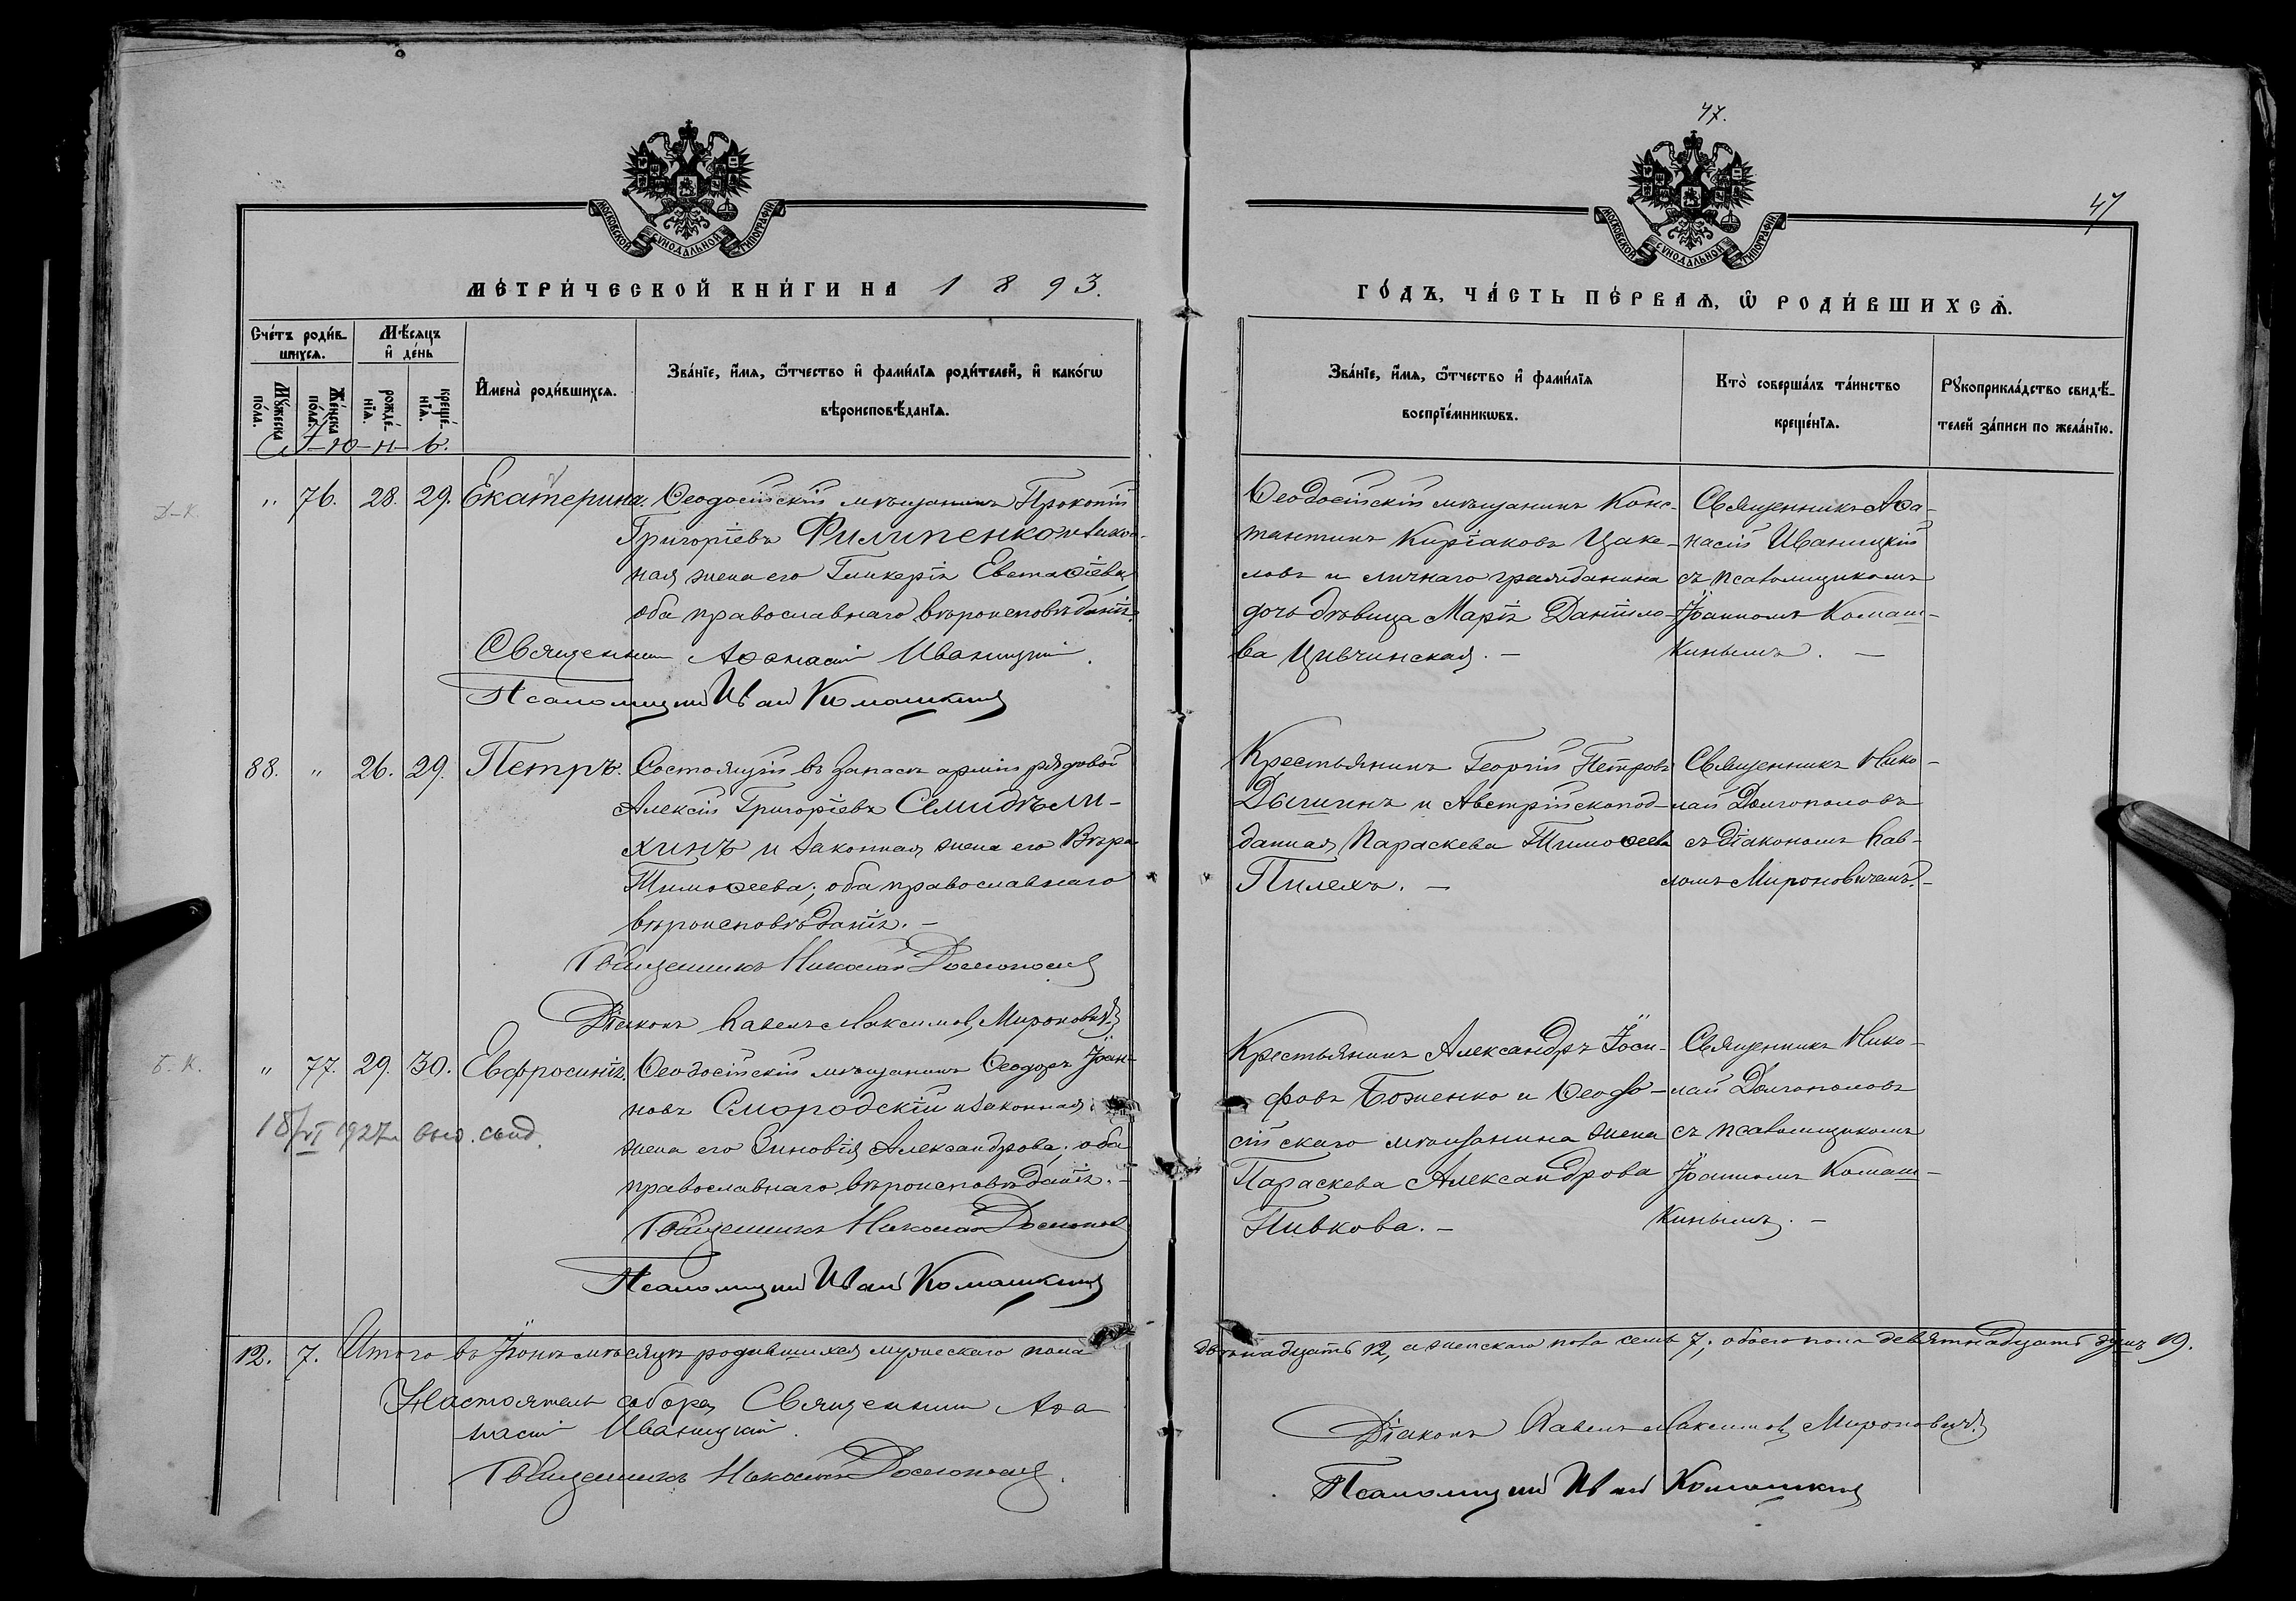 47.
47
МОСКОВСКОЙ СѴНОДАЛЬНОЙ ТИПОГРАФІИ
МОСКОВСКОЙ СѴНОДАЛЬНОЙ ТИПОГРАФІИ
МЕТРИ́ЧЕСКОЙ КНИ́ГИ НА 1893.
ГО́ДЪ, ЧА́СТЬ ПЕ́РВАѦ, Ѡ РОДИ́ВШИХСѦ.
Сче́тъ роди́в-
шихся.
Мѣ́сяцъ
и҆ де́нь
Мꙋ́жеска по́ла.
Же́нска по́ла.
рожде́-нїя.
креще́-нїя.
И҆мена̀ роди́вшихся.
Зва́нїе, и҆́мя, ѻ҆́тчество и҆ фами́лїя роди́телей, и҆ како́гѡ
вѣроисповѣ́данїя.
Зва́нїе, и҆́мя, ѻ҆́тчество и҆ фами́лїя
воспрїе́мникѡвъ.
Кто̀ соверша́лъ та́инство
креще́нїя.
Рꙋкоприкла́дство свидѣ́-
телей за́писи по жела́нїю.
І-ю-н-ь.
Д-К.
" 76. 28. 29. Екатерина.
Ѳеодосійскій мѣщанинъ Прокопій
Григоріевъ Филипенко и закон-
ная жена его Гликерія Евстаѳіева,
оба православнаго вѣроисповѣданія.
Священник Аѳанасій Иваницкій.
Псаломщик Иван Комашкин
Ѳеодосійскій мѣщанинъ Конс-
тантинъ Киріаковъ Цаке-
ловъ и личнаго гражданина
дочь дѣвица Марія Данііло-
ва Цивчинская. —
Священникъ Аѳа-
насій Иваницкій
съ псаломщикомъ
Іоанномъ Комаш-
кинымъ. —
88. " 26. 29. Петръ.
Состоящій въ запасѣ арміи рядовой
Алексій Григоріевъ Семидѣли-
хинъ и законная жена его Вѣра
Тимоѳеева; оба православнаго
вѣроисповѣданія. —
Священникъ Николай Долгополов
Діаконъ Павелъ Максимов Миронович.
Крестьянинъ Георгій Петровъ
Дышинъ и Австрійскопод-
данная Параскева Тимоѳеева
Пилехъ. —
Священникъ Нико-
лай Долгополовъ
съ діакономъ Пав-
ломъ Мироновичемъ. —
Б. К.
" 77. 29. 30. Евфросинія.
18/VI 1927 г. выд. свид.
Ѳеодосійскій мѣщанинъ Ѳеодоръ Іоан-
новъ Смородскій и законная
жена его Зиновія Александрова; оба
православнаго вѣроисповѣданія. —
Священникъ Николай Долгополов
Псаломщик Иван Комашкин
Крестьянинъ Александръ Іоси-
фовъ Боженко и Ѳеодо-
сійскаго мѣщанина жена
Параскева Александрова
Пивкова. —
Священникъ Нико-
лай Долгополовъ
съ псаломщикомъ
Іоанномъ Комаш-
кинымъ. —
12. 7. Итого въ Іюнѣ мѣсяцѣ родившихся мужескаго пола
двѣнадцать 12, а женскаго пола семь 7; обоего пола девятнадцать душъ 19.
Настоятель собора Священник Аѳа-
насій Иваницкій.
Священникъ Николай Долгополов.
Діаконъ Павелъ Максимов Миронович.
Псаломщик Иван Комашкин